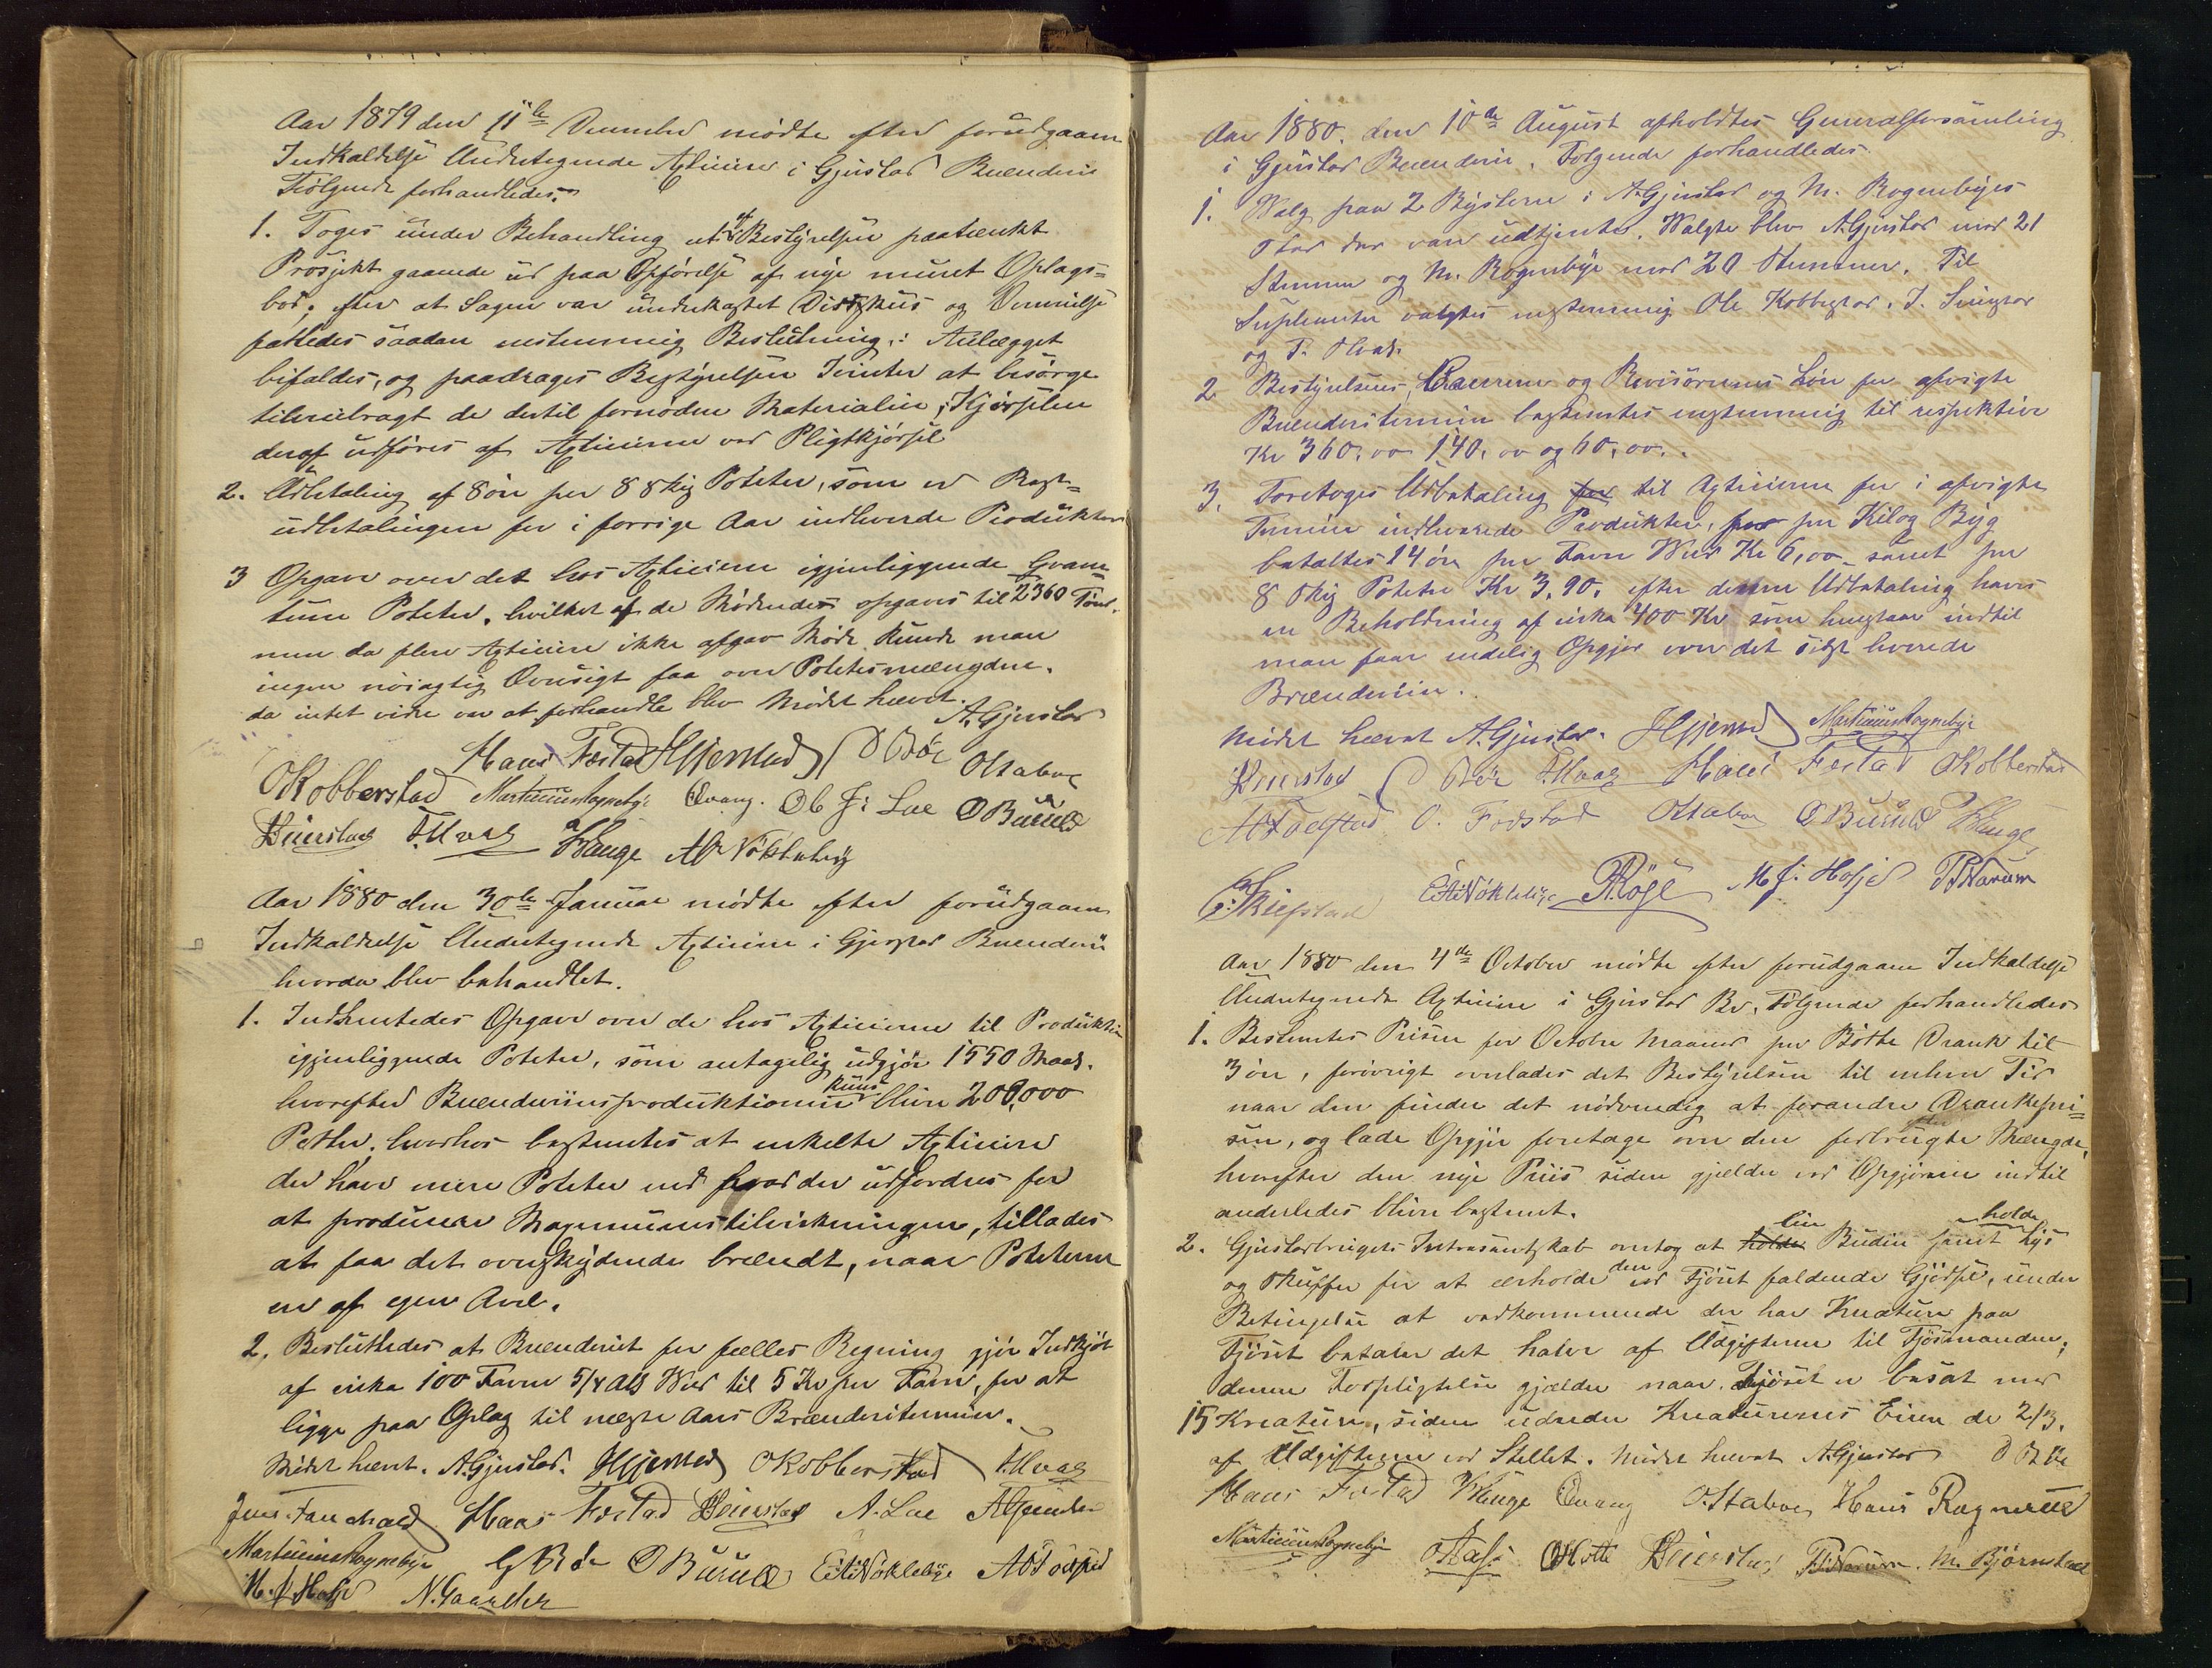 Aar 1879 den 11te December mødte efter forudgaaen
Indkaldelse Undertegnede Agtieiere i Gjerstad Brænderi
Følgende forhandledes:
1. Toges under Behandling et af Bestyrelsen paatænkt
Prosjekt gaaende ud paa Opførelse af nye muret Oplags=
bod; efter at Sagen var underkastet Diskus og
fattedes saadan enstemmig Beslutning: Anlægget
bifaldes, og paadrages Bestyrelsen Vinter at besørge
tilveiebragt de dertil fornødne Materialier, Kjørselen
deraf udføres af Agtieierne ved Pligtkjørsel
2. Udbetaling af 8 øre per 8 Skjp Poteter, som er Rest=
udbetalingen for i forrige Aar indleverede Produkter
3 Opgave over det hos Agtieierne igjenliggende Qvan=
tum Poteter, hvilket af de Mødende opgaves til 2360 Tønd.
men da flere Agtieiere ikke afgav Møde kunde man
ingen nøiagtig Oversigt faa over Potetesmængden.
da intet videre var at forhandle blev Mødet hævet.
A. Gjerstad
Hans Festad HHjemstad O Bøe OStabæk
OKobberstad Martinus Rognebye Qvang. Ob J: Lue OBurud
Seierstad Hvag Hauge AO Nøkleby
Aar 1880 den 30te Januar mødte efter forudgaaen
Indkaldelse Undertegnede Agtieiere i Gjerstad Brænderi
hvorda blev behandlet.
1. Indhentedes Opgave over de hos Agtieierne til Produktion
igjenliggende Poteter, som antagelig udgjør 1550 Maal.
hvorefter Brænderiets produktionen kuns bliver 200,000
Potter, hvorhos bestemtes at enkelte Agtieiere
der har mere Poteter end hvad der udfordres for
at producere Magsimumstilvirkningen, tillades
at faa det overskydende brændt, naar Poteterne
er af egen Avl.
2. Besluttedes at Brænderiet for fælles Regning gjør Indkjøb
af cirka 100 Favne 5/4 Als Ved til 5 Kr per Favn, for at
ligge paa Oplag til næste Aars Brænderitermin.
Mødet hævet. A. Gjerstad. HHjemstad OKobberstad Hvag
Jens Fauchald Hans Festad Seierstad A. Lue
Martinus Rognebye G Bøe OBurud E. Nøklebye
M. J. Hofje N. Gaarder
Aar 1880. den 10de August afholdtes Generalforsamling
i Gjerstad Brænderi. Følgende forhandledes
1. Valg paa 2 Bestyrere i A. Gjerstad og M. Rognebyes
Sted der var udtjente. Valgte blev A. Gjerstad med 21
Stemmer og M. Rognebye med 20 Stemmer. Til
Suplenter valgtes enstemmig Ole Kobberstad. J. Seierstad
og T. Hvag.
2 Bestyrelsens, og Revisorernes Løn for afvigte
Brænderitermin bestemtes enstemmig til respektive
Kr 360,00 140,00 og 60,00.
3, Foretoges Udbetaling for til Agtieierne for i afvigte
Termin indleverede Produkter, for per Kilog Byg
betaltes 14 øre per Favn Ved Kr 6,00 samt per
8 Skjp Poteter Kr 3,90. efter denne Udbetaling haves
en Beholdning af cirka 400 Kr som henstaar indtil
man faar endelig Opgjør over det sidst leverede
Brændeviin.
Mødet hævet A. Gjerstad. HHjemstad Martinus Rognebye
Seierstad O Bøe Hvag Hans Festad OKobberstad
O. Fodstad OStabæk OBurud Hauge
Skiefstad E. Nøklebye Røge M. J. Hofje Narum
Aar 1880 den 4de October mødte efter forudgaaen Indkaldelse
Undertegnede Agtieiere i Gjerstad Br. Følgende forhandledes
1. Bestemtes Prisen for October Maaned per Bøtte Drank til
3 øre, forøvrigt overlades det Bestyrelsen til enhver Tid
naar den finder det nødvendig at forandre Drankepri=
sen, og lade Opgjør foretage over den forbrugte Mængde,
hvorefter den nye Priis siden gjælder ved Opgjørene indtil
anderledes bliver bestemt.
2. Gjerstadbrugets Intresentskab overtog at holde leie Budeie samt holde Lys
og Skuffer for at erholde den ved Fjøset faldende Gjødsel, under
Betingelse at vedkommende der har Kreature paa
Fjøset betaler det halve af Udgifterne til Fjøsmanden,
denne Forpligtelse gjælder naar Fjøset er besat med
15 Kreature, siden udreder Kreaturenes Eiere de 2/3.
af Udgifterne ved Stellet. Mødet hævet A. Gjerstad O Bøe
Hans Festad Hauge Qvang O. Stabæk Hans Ragnerud
Martinus Rognebye Seierstad Narum M. Bjørnstad